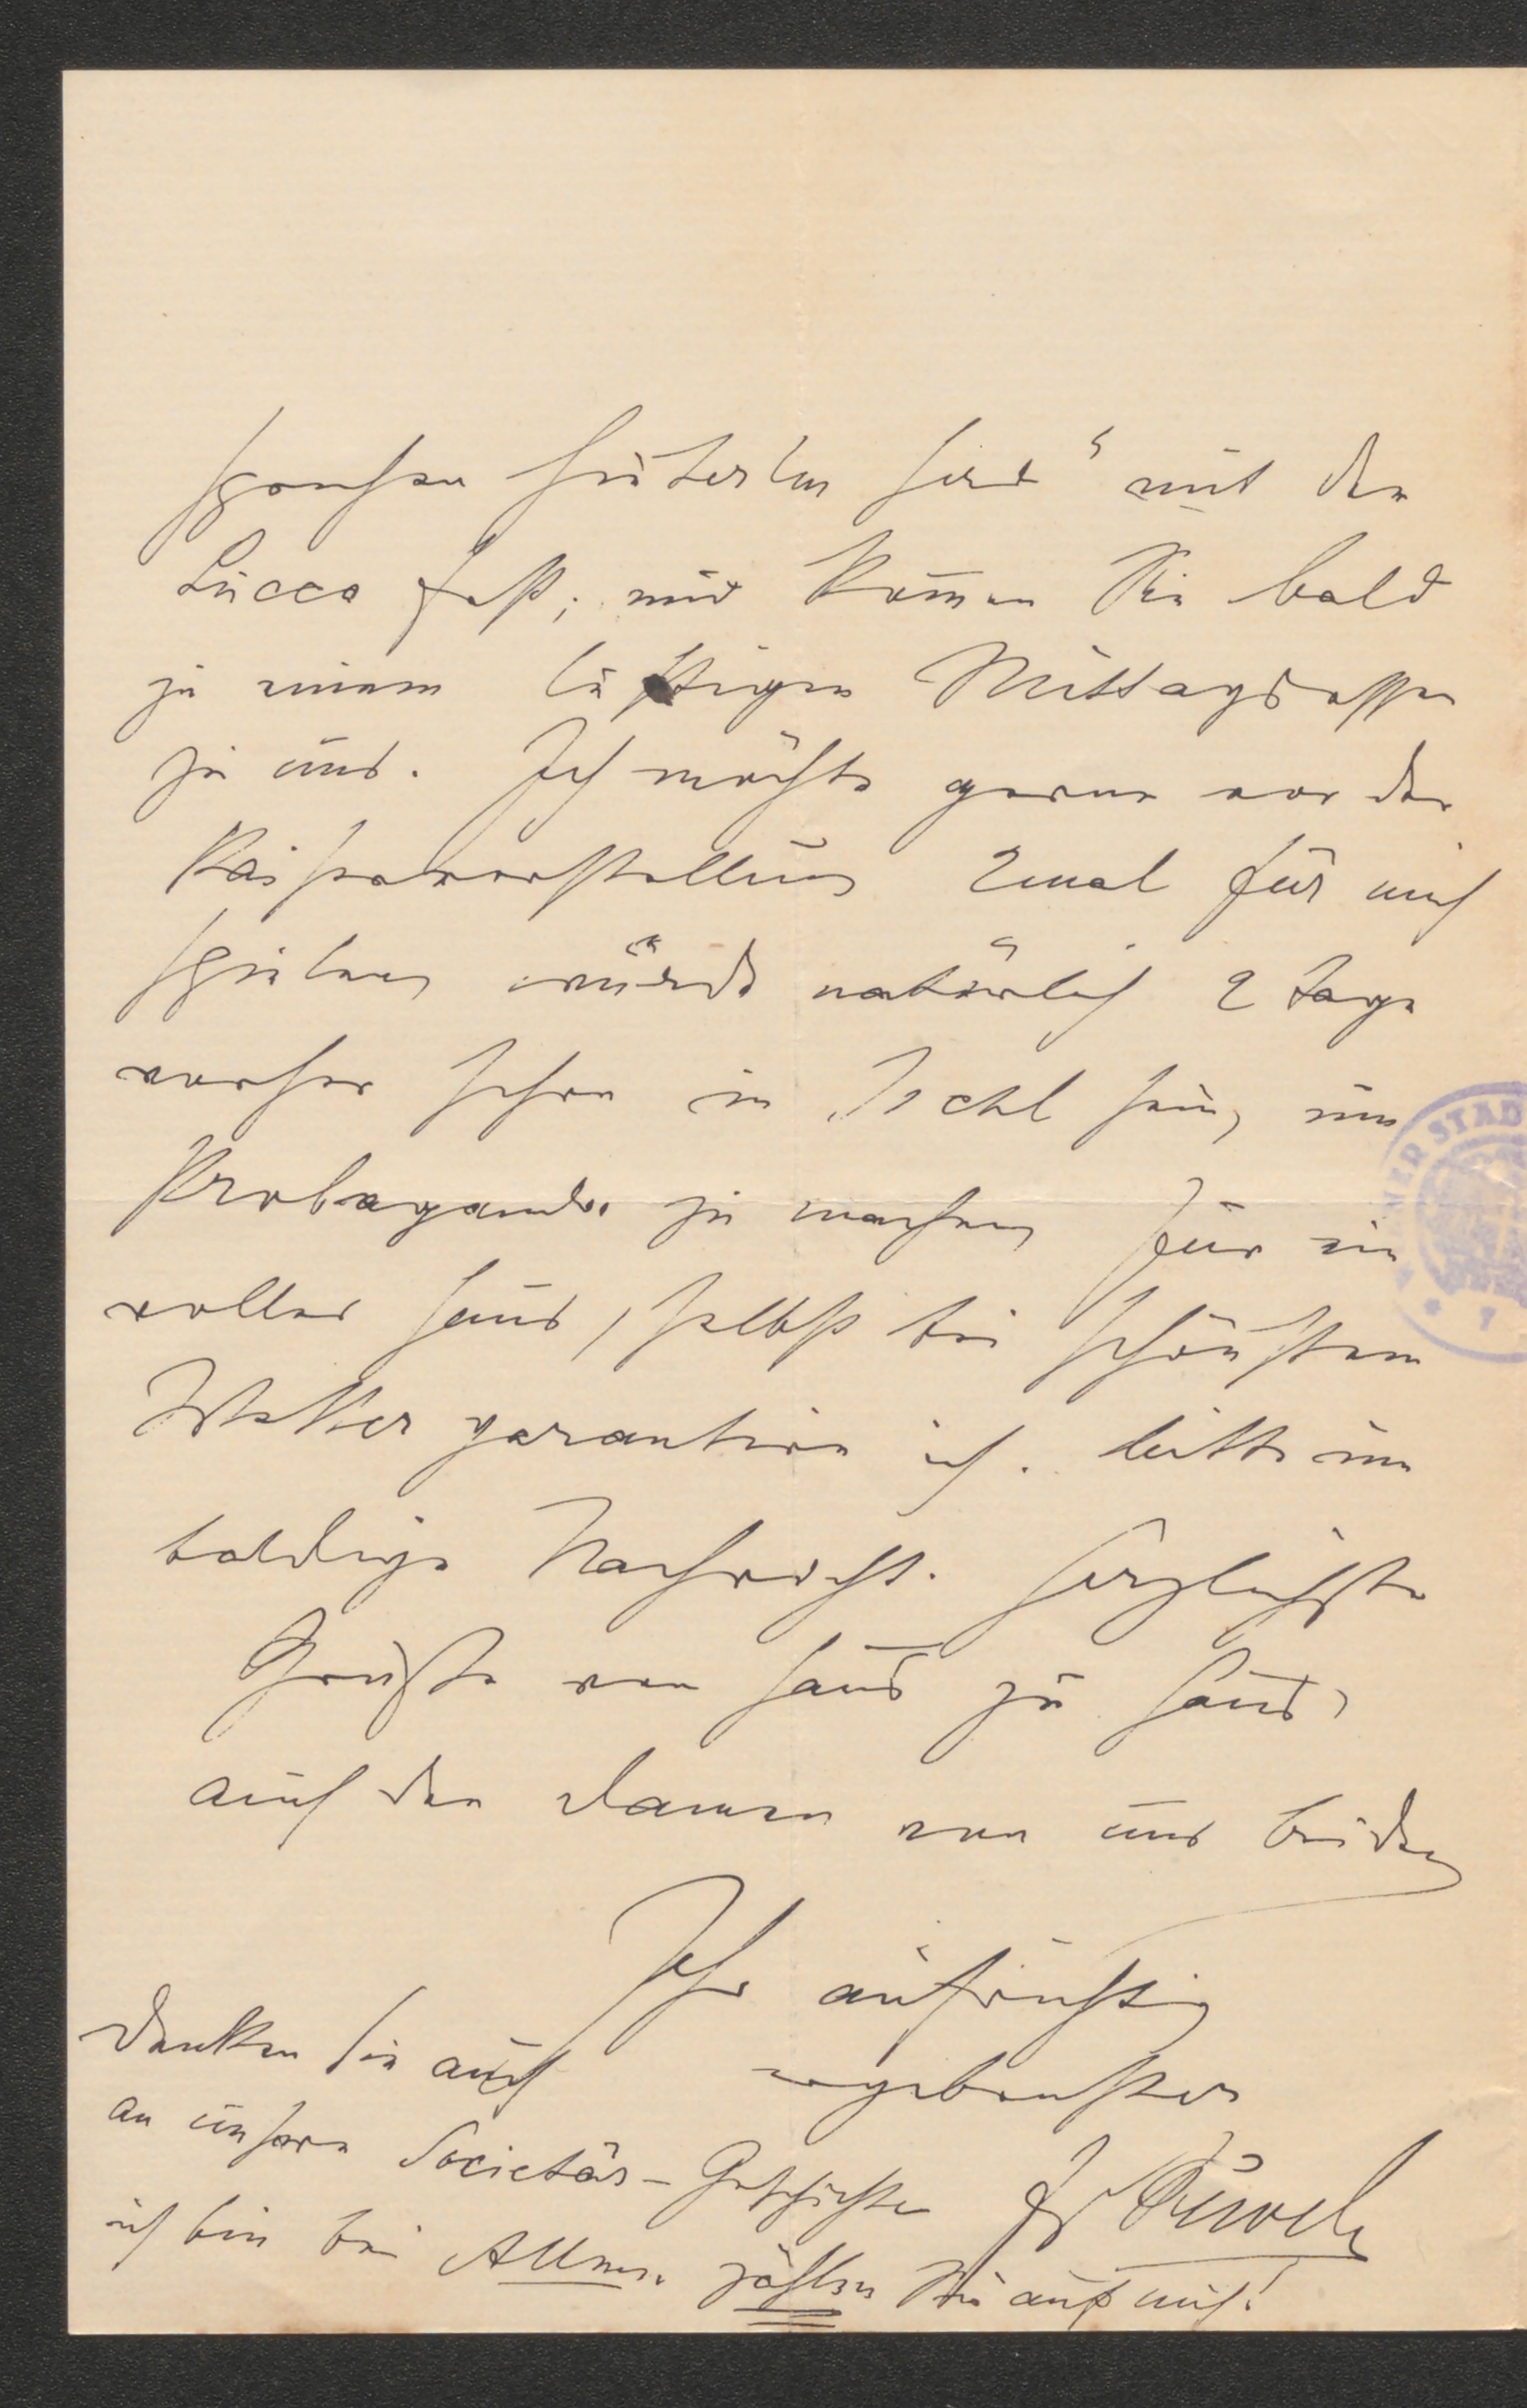 sprechen hinterlen sind" mit der
Lucca Fest; und kommen Sie bald
zu einem lustigen Mittagsessen
zu uns. Ich möchte gerne vor der
Kaiservorstellung 2mal für mich
spielen würde natürlich 2 Tage
vorher schon in Ischl sein, um
Probaganda zu machen für ein
volles Haus, selbst bei schönstem
Wetter garantire ich. bitte um
baldige Nachricht. Herzlichste
Grüsse von Haus zu Haus,
auch den Damen von uns beiden
Ihr aufrichtig
ergebenster
Denken Sie auch
an unsere Societär-Geschichte
ich bin bei Allem. zählen Sie auf mich!